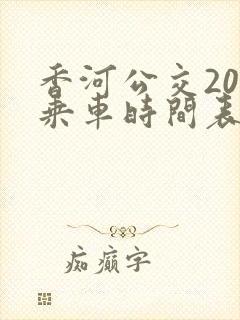 香河公交20
乘車時間表
痴癲字